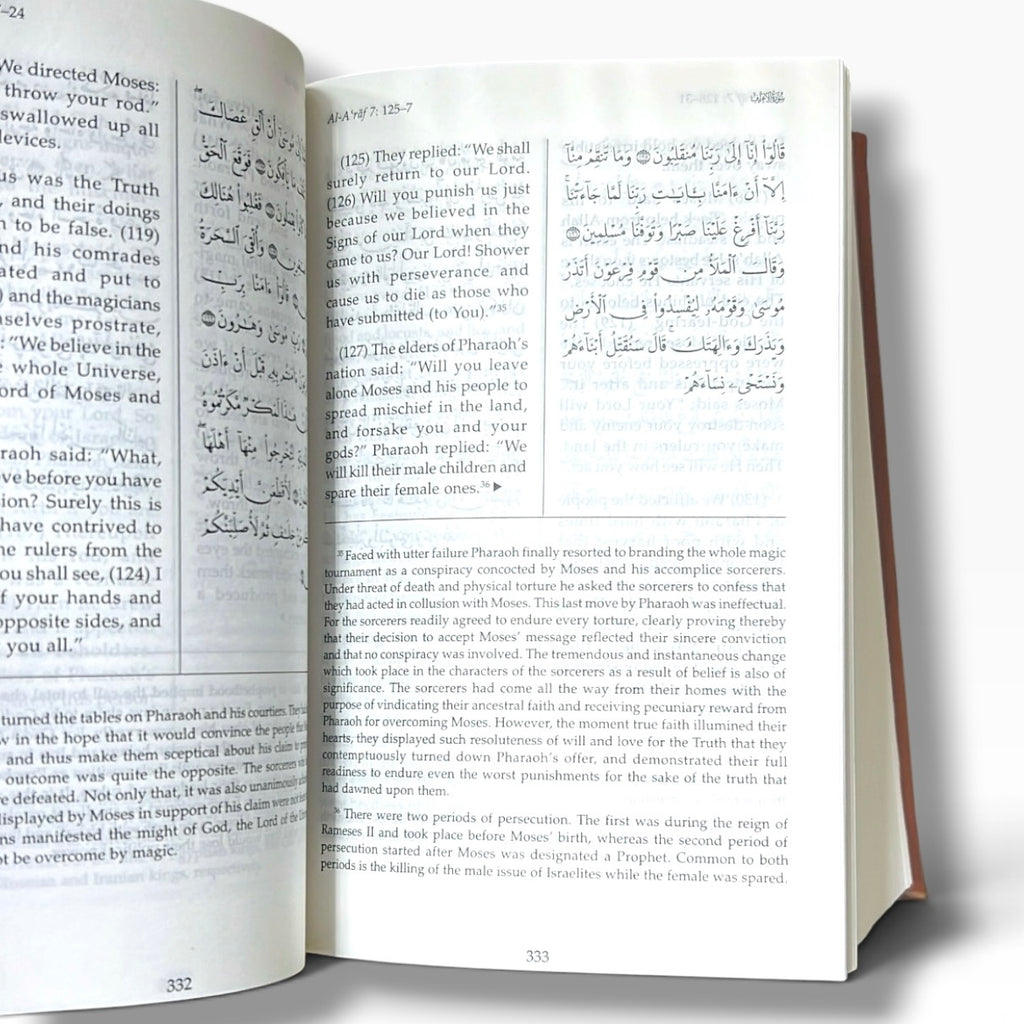 –24
We directed Moses:
throw your rod.”
swallowed up all
devices.
us was the Truth
, and their doings
n to be false. (119)
nd his comrades
ated and put to
) and the magicians
mselves prostrate,
: “We believe in the
e whole Universe,
ord of Moses and
raoh said: “What,
ve before you have
sion? Surely this is
have contrived to
he rulers from the
ou shall see, (124) I
f your hands and
opposite sides, and
you all.”
turned the tables on Pharaoh and his courtiers. They
w in the hope that it would convince the people that
and thus make them sceptical about his claim to
outcome was quite the opposite. The sorcerers
e defeated. Not only that, it was also unanimously
displayed by Moses in support of his claim were not
ns manifested the might of God, the Lord of the
ot be overcome by magic.
332
Al-A‘rāf 7: 125–7
(125) They replied: “We shall
surely return to our Lord.
(126) Will you punish us just
because we believed in the
Signs of our Lord when they
came to us? Our Lord! Shower
us with perseverance and
cause us to die as those who
have submitted (to You).”³⁵
(127) The elders of Pharaoh’s
nation said: “Will you leave
alone Moses and his people to
spread mischief in the land,
and forsake you and your
gods?” Pharaoh replied: “We
will kill their male children and
spare their female ones.³⁶ ▶
قَالُوٓا۟ إِنَّآ إِلَىٰ رَبِّنَا مُنقَلِبُونَ ۝ وَمَا تَنقِمُ مِنَّآ
إِلَّآ أَنْ ءَامَنَّا بِـَٔايَـٰتِ رَبِّنَا لَمَّا جَآءَتْنَا ۚ
رَبَّنَآ أَفْرِغْ عَلَيْنَا صَبْرًا وَتَوَفَّنَا مُسْلِمِينَ ۝
وَقَالَ ٱلْمَلَأُ مِن قَوْمِ فِرْعَوْنَ أَتَذَرُ
مُوسَىٰ وَقَوْمَهُۥ لِيُفْسِدُوا۟ فِى ٱلْأَرْضِ
وَيَذَرَكَ وَءَالِهَتَكَ ۚ قَالَ سَنُقَتِّلُ أَبْنَآءَهُمْ
وَنَسْتَحْىِۦ نِسَآءَهُمْ
³⁵ Faced with utter failure Pharaoh finally resorted to branding the whole magic
tournament as a conspiracy concocted by Moses and his accomplice sorcerers.
Under threat of death and physical torture he asked the sorcerers to confess that
they had acted in collusion with Moses. This last move by Pharaoh was ineffectual.
For the sorcerers readily agreed to endure every torture, clearly proving thereby
that their decision to accept Moses’ message reflected their sincere conviction
and that no conspiracy was involved. The tremendous and instantaneous change
which took place in the characters of the sorcerers as a result of belief is also of
significance. The sorcerers had come all the way from their homes with the
purpose of vindicating their ancestral faith and receiving pecuniary reward from
Pharaoh for overcoming Moses. However, the moment true faith illumined their
hearts, they displayed such resoluteness of will and love for the Truth that they
contemptuously turned down Pharaoh’s offer, and demonstrated their full
readiness to endure even the worst punishments for the sake of the truth that
had dawned upon them.
³⁶ There were two periods of persecution. The first was during the reign of
Rameses II and took place before Moses’ birth, whereas the second period of
persecution started after Moses was designated a Prophet. Common to both
periods is the killing of the male issue of Israelites while the female was spared.
333